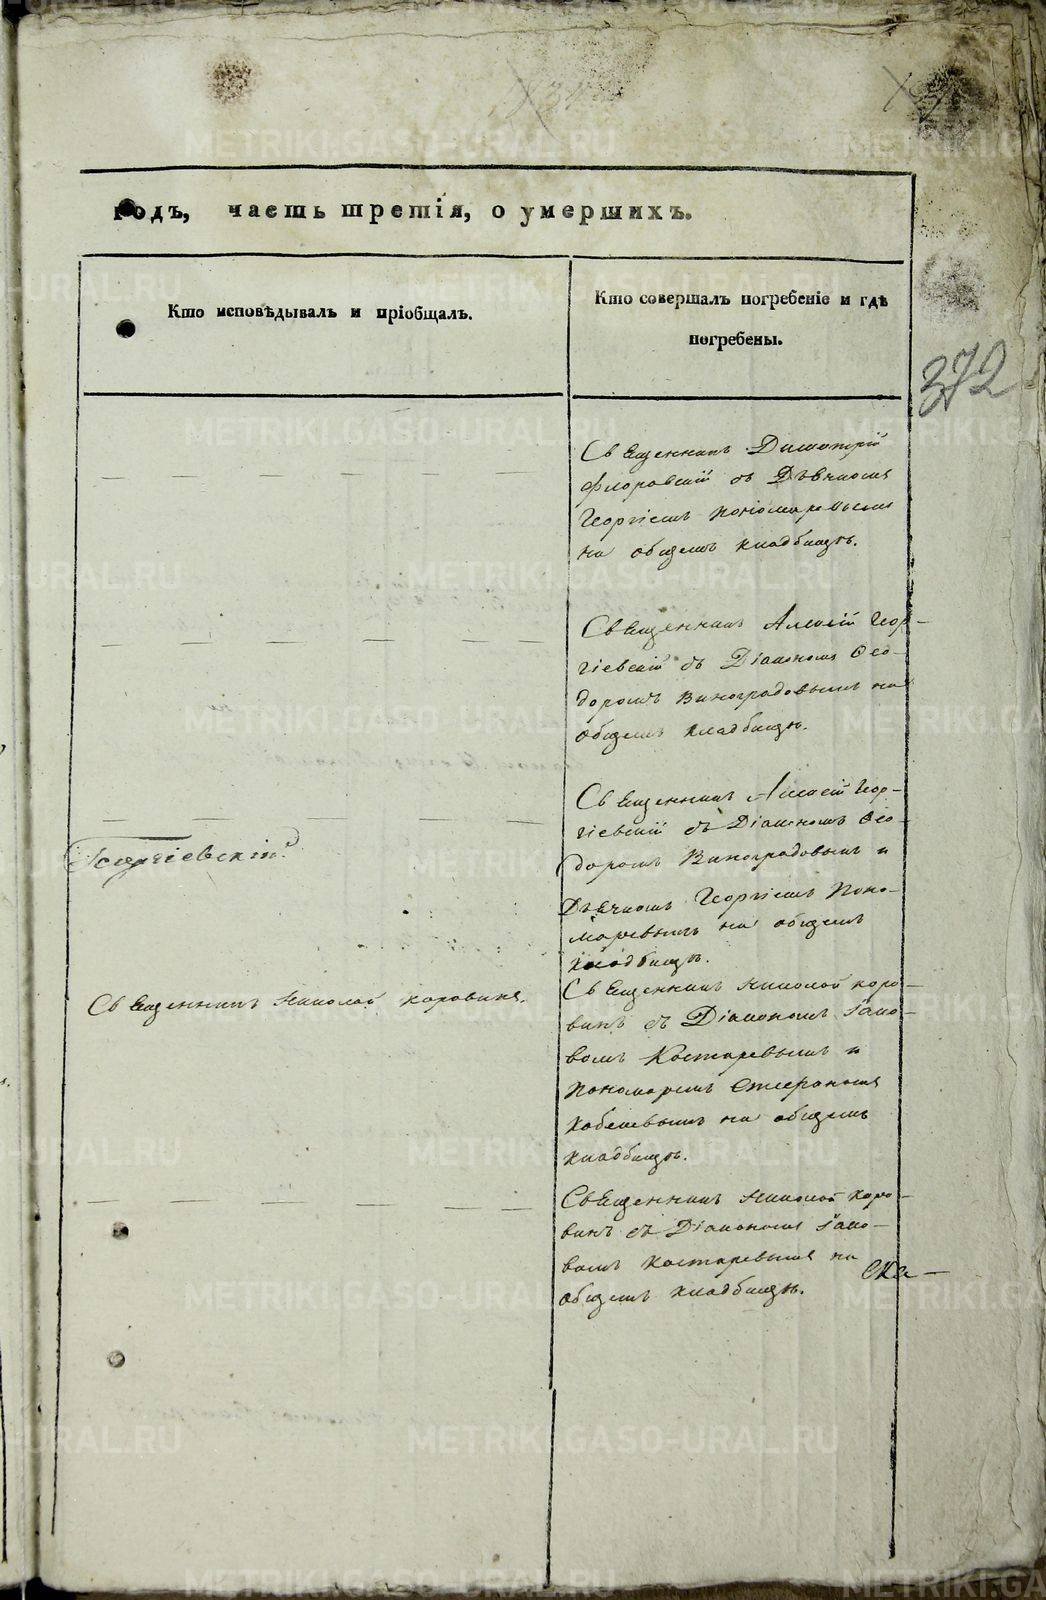 372
годъ, часть третія, о умершихъ.
Кто исповѣдывалъ и пріобщалъ.
Кто совершалъ погребеніе и гдѣ
погребены.
Священникъ Димитрій
Флоровскій съ Дьячкомъ
Георгіемъ Пономаревымъ
на общемъ кладбищѣ.
Священникъ Алексій Геор-
гіевскій съ Діакономъ Ѳео-
доромъ Виноградовымъ на
общемъ кладбищѣ.
Священникъ Алексій Геор-
гіевскій съ Діакономъ Ѳео-
доромъ Виноградовымъ и
Дьячкомъ Георгіемъ Поно-
маревымъ на общемъ
кладбищѣ.
Георгіевскій.
Священникъ Николай Коровинъ.
Священникъ Николай Коро-
винъ съ Діакономъ Іако-
вомъ Костаревымъ и
Пономаремъ Стефаномъ
на общемъ
кладбищѣ.
Священникъ Николай Коро-
винъ съ Діакономъ Іако-
вомъ Костаревымъ на
общемъ кладбищѣ.
METRIKI.GASO-URAL.RU